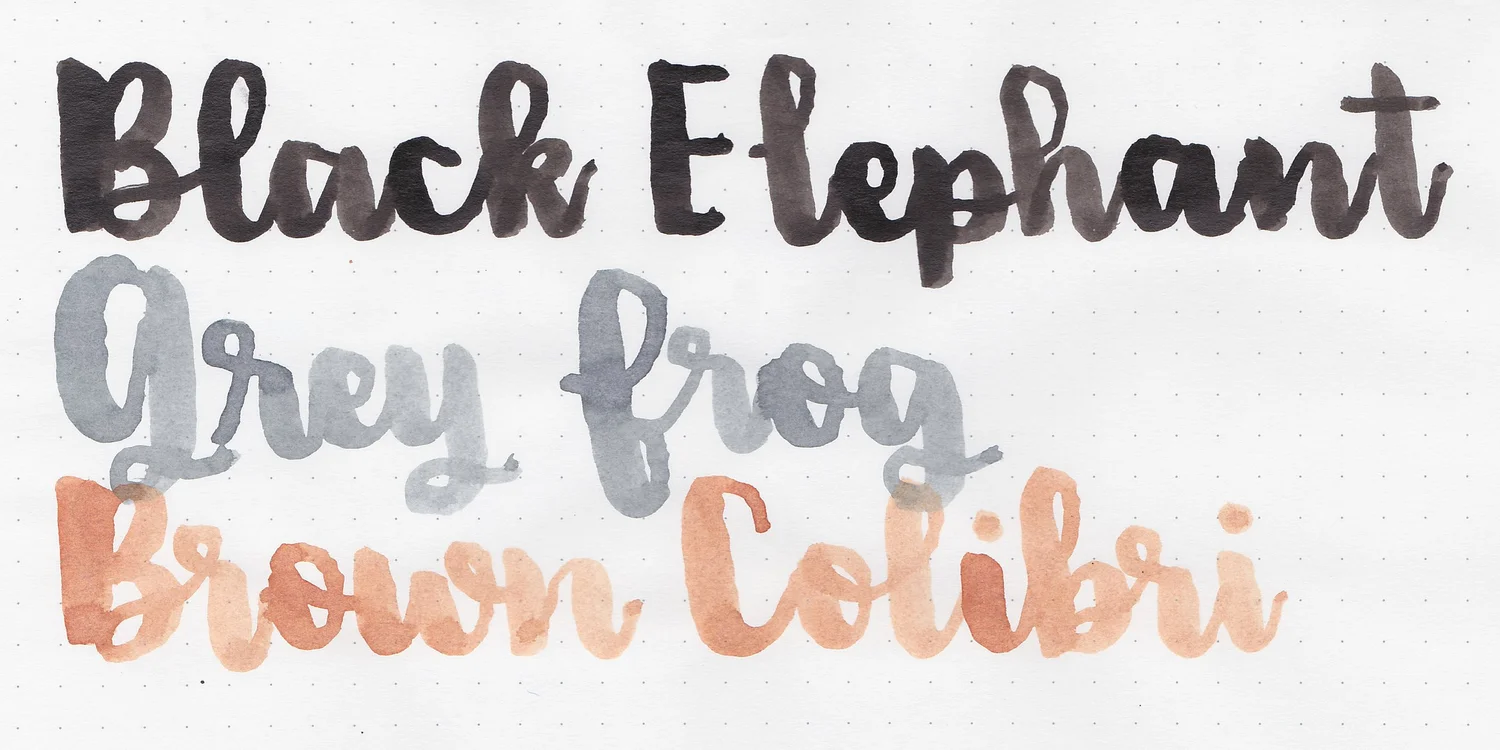 Black Elephant
Grey frog
Brown Colibri